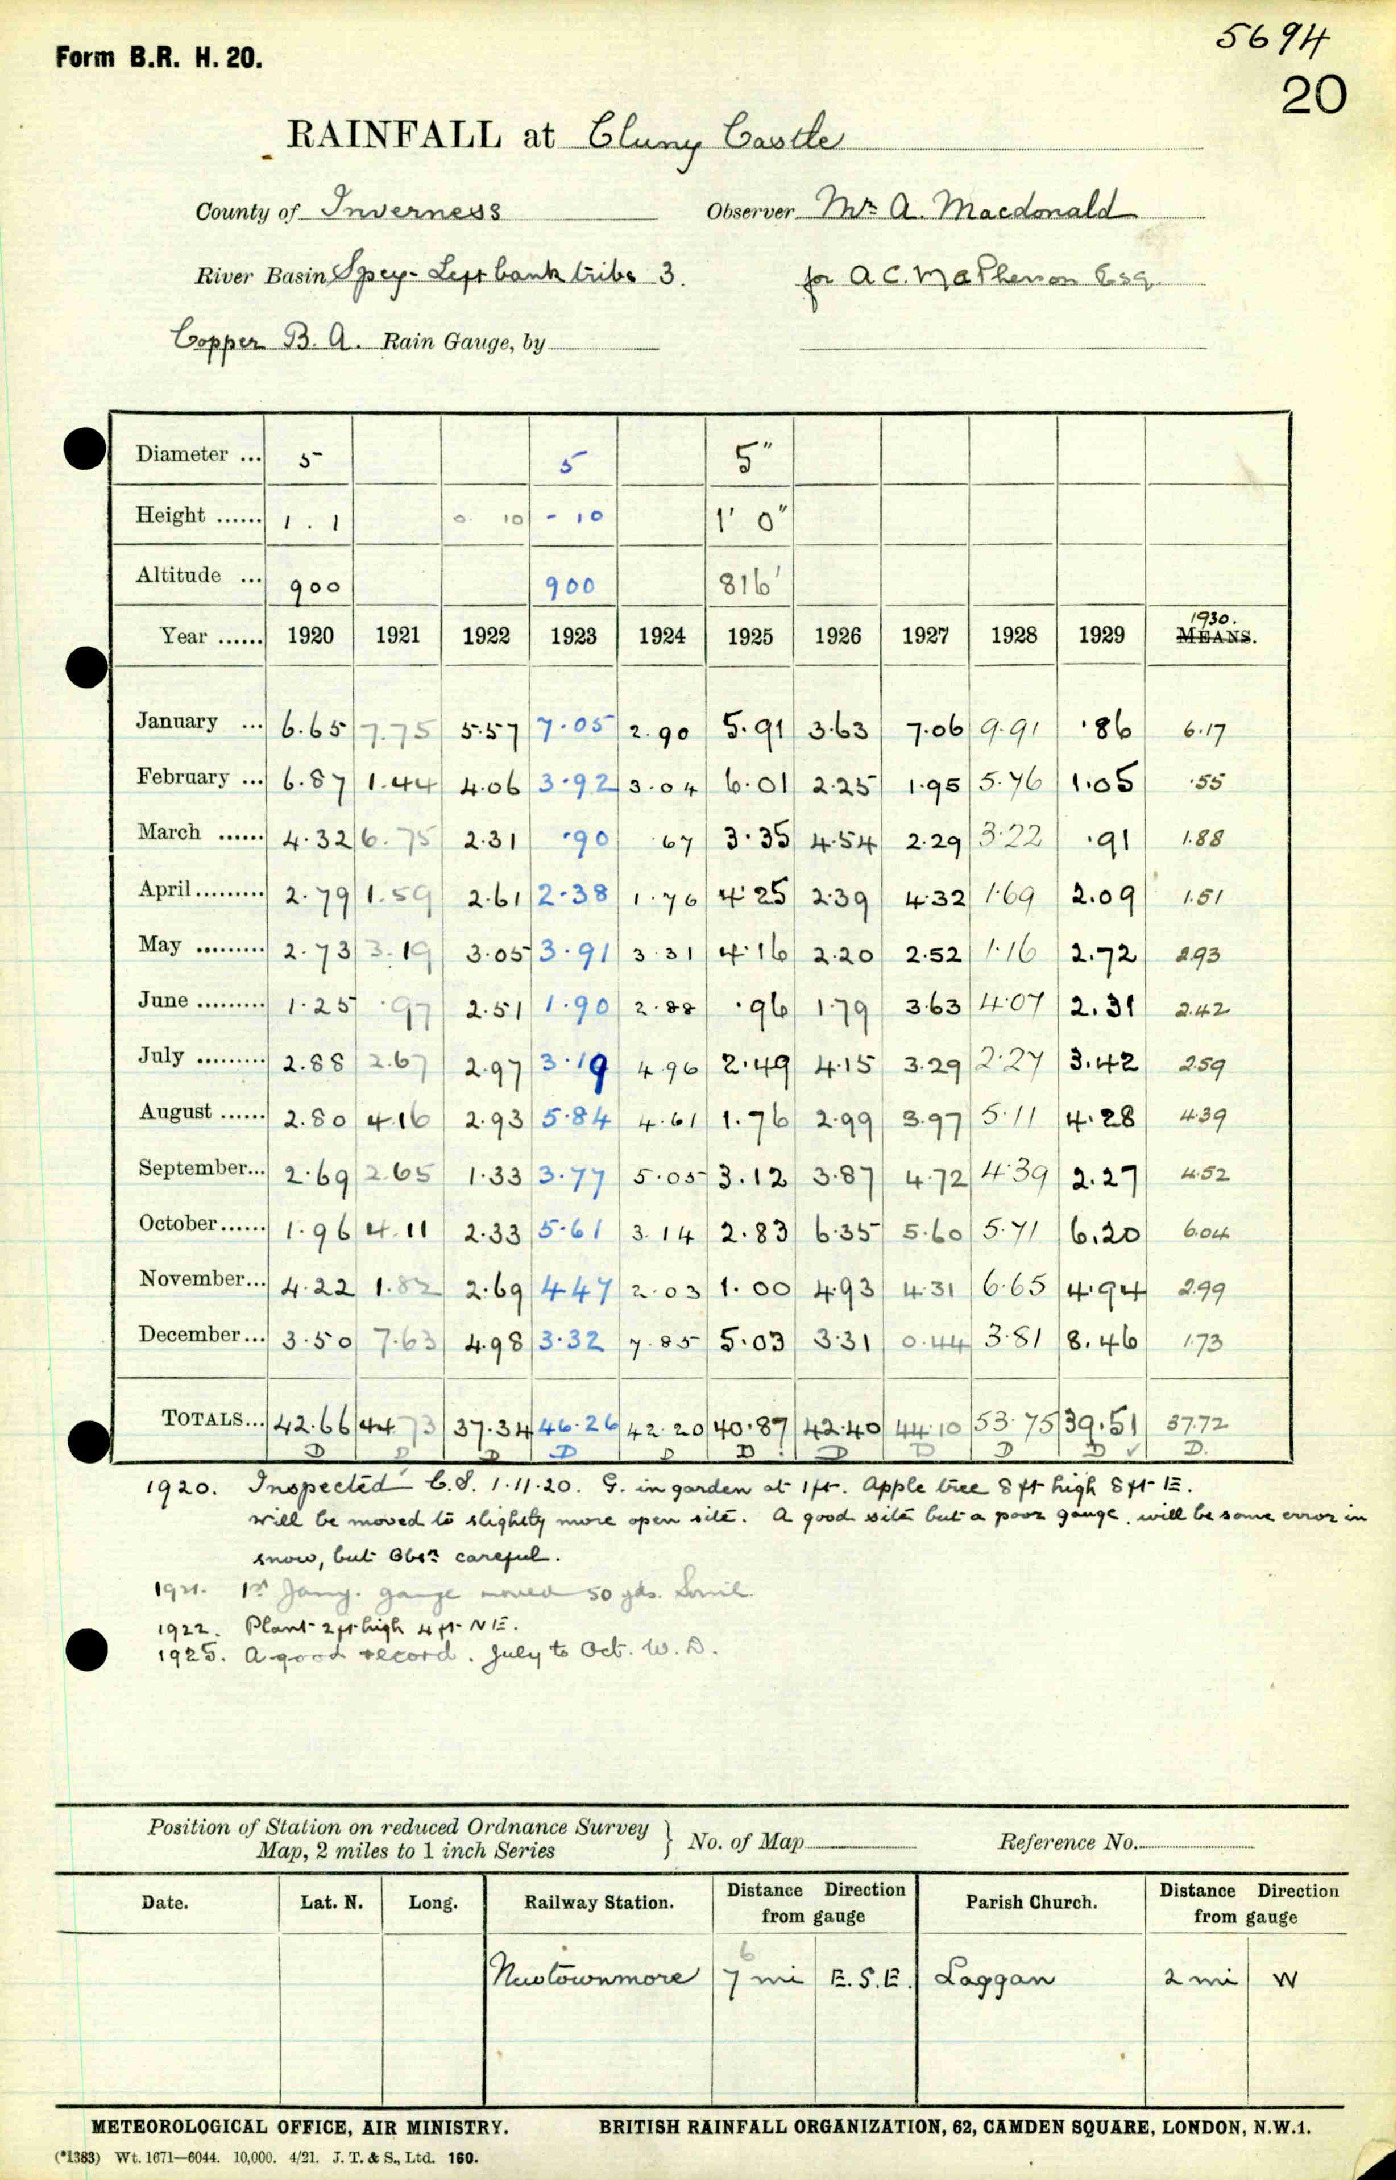 5694
Form B.R. H. 20.
20
RAINFALL at Cluny Castle
County of Inverness Observer Mr. A. Macdonald
River Basin Spey - Left bank tribs 3. for A C. MacPherson Esq
Copper B. A. Rain Gauge, by
Diameter ... 5 5 5"
Height ...... 1 . 1 0 10 - 10 1' 0"
Altitude ... 900 900 816'
1930.
Year ...... 1920 1921 1922 1923 1924 1925 1926 1927 1928 1929 MEANS.
January ... 6.65 7.75 5.57 7.05 2.90 5.91 3.63 7.06 9.91 .86 6.17
February ... 6.87 1.44 4.06 3.92 3.04 6.01 2.25 1.95 5.76 1.05 .55
March ...... 4.32 6.75 2.31 .90 .67 3.35 4.54 2.29 3.22 .91 1.88
April......... 2.79 1.59 2.61 2.38 1.76 4.25 2.39 4.32 1.69 2.09 1.51
May ......... 2.73 3.19 3.05 3.91 3.31 4.16 2.20 2.52 1.16 2.72 2.93
June ......... 1.25 .97 2.51 1.90 2.88 .96 1.79 3.63 4.07 2.31 2.42
July ......... 2.88 2.67 2.97 3.19 4.96 2.49 4.15 3.29 2.27 3.42 2.59
August ...... 2.80 4.16 2.93 5.84 4.61 1.76 2.99 3.97 5.11 4.28 4.39
September... 2.69 2.65 1.33 3.77 5.05 3.12 3.87 4.72 4.39 2.27 4.52
October...... 1.96 4.11 2.33 5.61 3.14 2.83 6.35 5.60 5.71 6.20 6.04
November... 4.22 1.82 2.69 4.47 2.03 1.00 4.93 4.31 6.65 4.94 2.99
December... 3.50 7.63 4.98 3.32 7.85 5.03 3.31 0.44 3.81 8.46 1.73
TOTALS... 42.66 44.73 37.34 46.26 42.20 40.87 42.40 44.10 53.75 39.51 37.72
D D D D D D D D D D ✓ D.
1920. Inspected C.S. 1.11.20. G. in garden at 1ft. Apple tree 8 ft high 8 ft E.
will be moved to slightly more open site. A good site but a poor gauge, will be some error in
snow, but Obsr careful.
1921. 1st Jany. gauge moved 50 yds.
1922. Plant 2 ft high 4 ft NE.
1925. A good record. July to Oct. W. D.
Position of Station on reduced Ordnance Survey
Map, 2 miles to 1 inch Series } No. of Map Reference No.
Date. Lat. N. Long. Railway Station. Distance Direction from gauge Parish Church. Distance Direction from gauge
6
Newtownmore 7 mi E. S. E. Laggan 2 mi W
METEOROLOGICAL OFFICE, AIR MINISTRY. BRITISH RAINFALL ORGANIZATION, 62, CAMDEN SQUARE, LONDON, N.W.1.
(*1383) Wt. 1671—6044. 10,000. 4/21. J. T. & S., Ltd. 160.